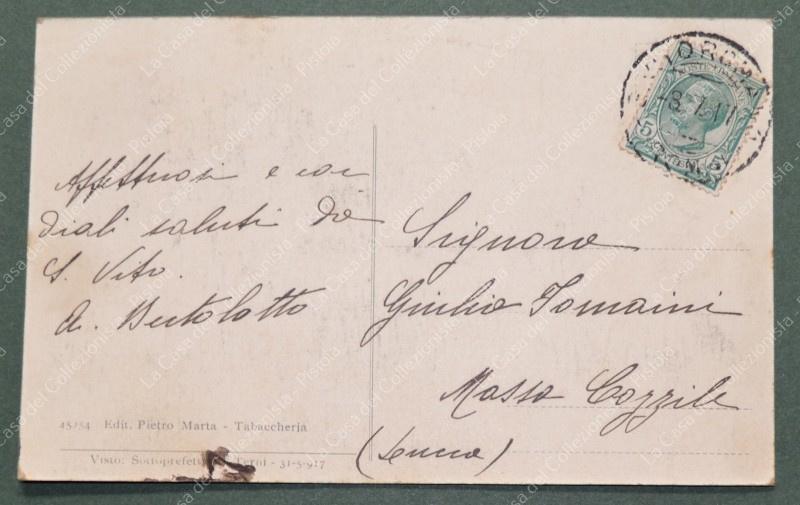 Affettuosi e cor
diali saluti da
S. Vito.
A. Bertolotto
Signora
Giulia Tomaini
Massa Cozzile
(Lucca)
45254 Edit. Pietro Marta - Tabaccheria
Visto: Sottoprefett Terni - 31-5-917
5
La Casa del Collezionista - Pistoia